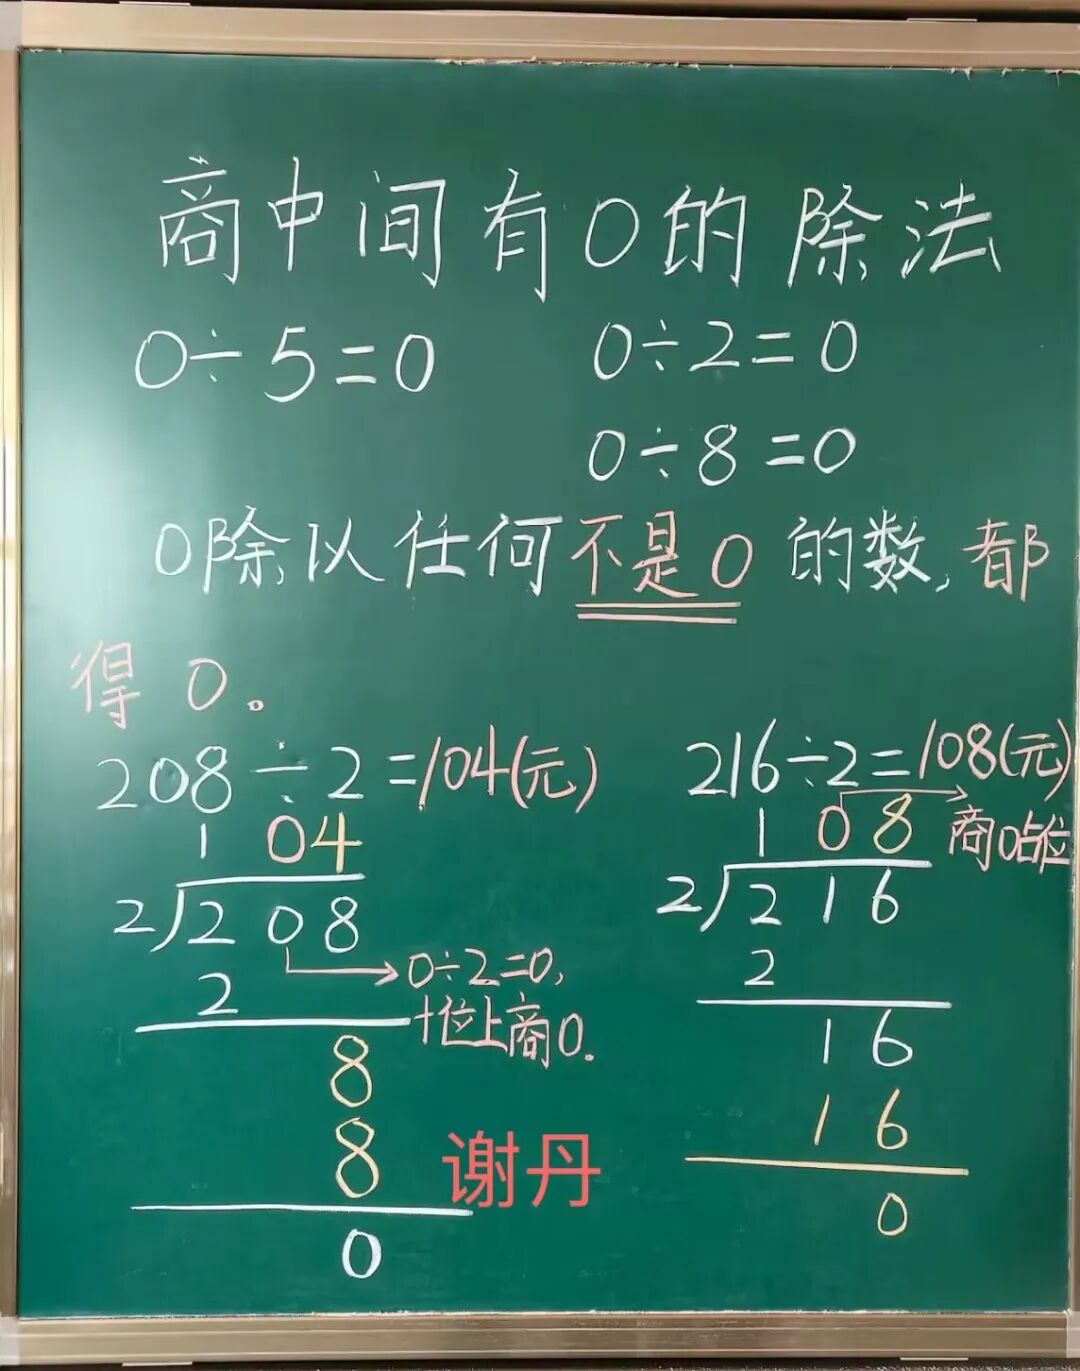 商中间有0的除法
0÷5=0 0÷2=0
0÷8=0
0除以任何不是0的数,都
得0。
208÷2=104(元)
1 0 4
2 2 0 8
2
0÷2=0,
十位上商0.
8
8
0
216÷2=108(元)
1 0 8
商0占位
2 2 1 6
2
1 6
1 6
0
谢丹